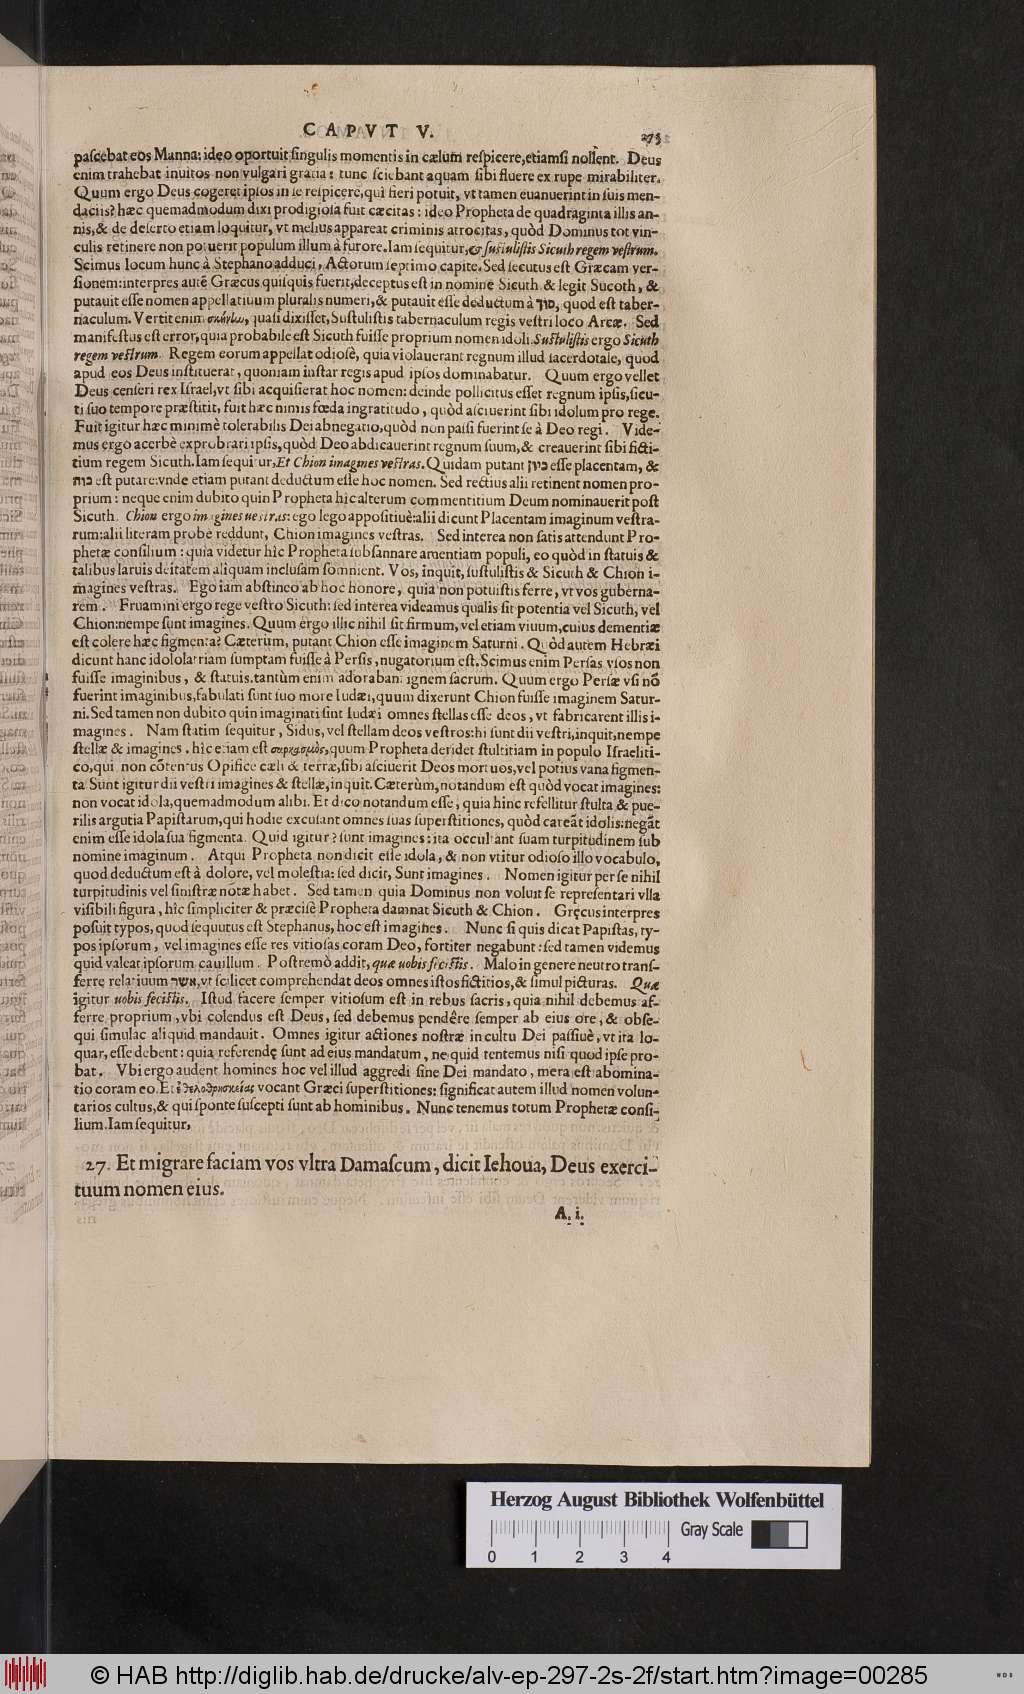 CAPVT V.
275
paſcebat eos Manna: ideo oportuit ſingulis momentis in cælum reſpicere, etiamſi nollent. Deus
enim trahebat inuitos non vulgari gratia: tunc ſciebant aquam ſibi fluere ex rupe mirabiliter.
Quum ergo Deus cogeret ipſos in ſe reſpicere, qui fieri potuit, vt tamen euanuerint in ſuis men-
daciis? hæc quemadmodum dixi prodigioſa fuit cæcitas: ideo Propheta de quadraginta illis an-
nis, & de deſerto etiam loquitur, vt melius appareat criminis atrocitas, quòd Dominus tot vin-
culis retinere non potuerit populum illum à furore. Iam ſequitur, & ſuſtuliſtis Sicuth regem veſtrum.
Scimus locum hunc à Stephano adduci, Actorum ſeptimo capite. Sed ſecutus eſt Græcam ver-
ſionem: interpres autē Græcus quiſquis fuerit, deceptus eſt in nomine Sicuth & legit Sucoth, &
putauit eſſe nomen appellatiuum pluralis numeri, & putauit eſſe deductum à סוך, quod eſt taber-
naculum. Vertit enim σκήνω, quaſi dixiſſet, Suſtuliſtis tabernaculum regis veſtri loco Arcæ. Sed
manifeſtus eſt error, quia probabile eſt Sicuth fuiſſe proprium nomen idoli. Suſtuliſtis ergo Sicuth
regem veſtrum. Regem eorum appellat odioſè, quia violauerant regnum illud ſacerdotale, quod
apud eos Deus inſtituerat, quoniam inſtar regis apud ipſos dominabatur. Quum ergo vellet
Deus cenſeri rex Iſrael, vt ſibi acquiſierat hoc nomen: deinde pollicitus eſſet regnum ipſis, ſicu-
ti ſuo tempore præſtitit, fuit hæc nimis fœda ingratitudo, quòd aſciuerint ſibi idolum pro rege.
Fuit igitur hæc minimè tolerabilis Dei abnegatio, quòd non paſſi fuerint ſe à Deo regi. Vide-
mus ergo acerbè exprobrari ipſis, quòd Deo abdicauerint regnum ſuum, & creauerint ſibi ficti-
tium regem Sicuth. Iam ſequitur, Et Chion imagines veſtras. Quidam putant כיון eſſe placentam, &
כוה eſt putare: vnde etiam putant deductum eſſe hoc nomen. Sed rectius alii retinent nomen pro-
prium: neque enim dubito quin Propheta hic alterum commentitium Deum nominauerit poſt
Sicuth. Chion ergo imagines ueſtras: ego lego appoſitiuè: alii dicunt Placentam imaginum veſtra-
rum: alii literam probe reddunt, Chion imagines veſtras. Sed interea non ſatis attendunt Pro-
phetæ conſilium: quia videtur hîc Propheta ſubſannare amentiam populi, eo quòd in ſtatuis &
talibus laruis deitatem aliquam incluſam ſomnient. Vos, inquit, ſuſtuliſtis & Sicuth & Chion i-
magines veſtras. Ego iam abſtineo ab hoc honore, quia non potuiſtis ferre, vt vos guberna-
rem. Fruamini ergo rege veſtro Sicuth: ſed interea videamus qualis ſit potentia vel Sicuth, vel
Chion: nempe ſunt imagines. Quum ergo illic nihil ſit firmum, vel etiam viuum, cuius dementiæ
eſt colere hæc figmenta? Cæterùm, putant Chion eſſe imaginem Saturni. Quòd autem Hebræi
dicunt hanc idololatriam ſumptam fuiſſe à Perſis, nugatorium eſt. Scimus enim Perſas vſos non
fuiſſe imaginibus, & ſtatuis. tantùm enim adorabant ignem ſacrum. Quum ergo Perſæ vſi nō
fuerint imaginibus, fabulati ſunt ſuo more Iudæi, quum dixerunt Chion fuiſſe imaginem Satur-
ni. Sed tamen non dubito quin imaginati ſint Iudæi omnes ſtellas eſſe deos, vt fabricarent illis i-
magines. Nam ſtatim ſequitur, Sidus, vel ſtellam deos veſtros: hi ſunt dii veſtri, inquit, nempe
ſtellæ & imagines. hîc etiam eſt σαρκασμὸς, quum Propheta deridet ſtultitiam in populo Iſraeliti-
co, qui non cōtentus Opifice cæli & terræ, ſibi aſciuerit Deos mortuos, vel potius vana figmen-
ta. Sunt igitur dii veſtri imagines & ſtellæ, inquit. Cæterùm, notandum eſt quòd vocat imagines:
non vocat idola, quemadmodum alibi. Et dico notandum eſſe, quia hinc refellitur ſtulta & pue-
rilis argutia Papiſtarum, qui hodie excuſant omnes ſuas ſuperſtitiones, quòd careāt idolis: negāt
enim eſſe idola ſua figmenta. Quid igitur? ſunt imagines: ita occultant ſuam turpitudinem ſub
nomine imaginum. Atqui Propheta non dicit eſſe idola, & non vtitur odioſo illo vocabulo,
quod deductum eſt à dolore, vel moleſtia: ſed dicit, Sunt imagines. Nomen igitur per ſe nihil
turpitudinis vel ſiniſtræ notæ habet. Sed tamen quia Dominus non voluit ſe repreſentari vlla
viſibili figura, hîc ſimpliciter & præciſè Propheta damnat Sicuth & Chion. Gręcus interpres
poſuit typos, quod ſequutus eſt Stephanus, hoc eſt imagines. Nunc ſi quis dicat Papiſtas, ty-
pos ipſorum, vel imagines eſſe res vitioſas coram Deo, fortiter negabunt: ſed tamen videmus
quid valeat ipſorum cauillum. Poſtremò addit, quæ uobis feciſtis. Malo in genere neutro tranſ-
ferre relatiuum אשר, vt ſcilicet comprehendat deos omnes iſtos fictitios, & ſimul picturas. Quæ
igitur uobis feciſtis. Iſtud facere ſemper vitioſum eſt in rebus ſacris, quia nihil debemus af-
ferre proprium, vbi colendus eſt Deus, ſed debemus pendêre ſemper ab eius ore, & obſe-
qui ſimulac aliquid mandauit. Omnes igitur actiones noſtræ in cultu Dei paſſiuè, vt ita lo-
quar, eſſe debent: quia referendę ſunt ad eius mandatum, ne quid tentemus niſi quod ipſe pro-
bat. Vbi ergo audent homines hoc vel illud aggredi ſine Dei mandato, mera eſt abomina-
tio coram eo. Et ἐθελοθρησκείας vocant Græci ſuperſtitiones: ſignificat autem illud nomen volun-
tarios cultus, & qui ſponte ſuſcepti ſunt ab hominibus. Nunc tenemus totum Prophetæ conſi-
lium. Iam ſequitur,
27. Et migrare faciam vos vltra Damaſcum, dicit Iehoua, Deus exerci-
tuum nomen eius.
A. i.
Herzog August Bibliothek Wolfenbüttel
Gray Scale
0 1 2 3 4
© HAB http://diglib.hab.de/drucke/alv-ep-297-2s-2f/start.htm?image=00285
WDB